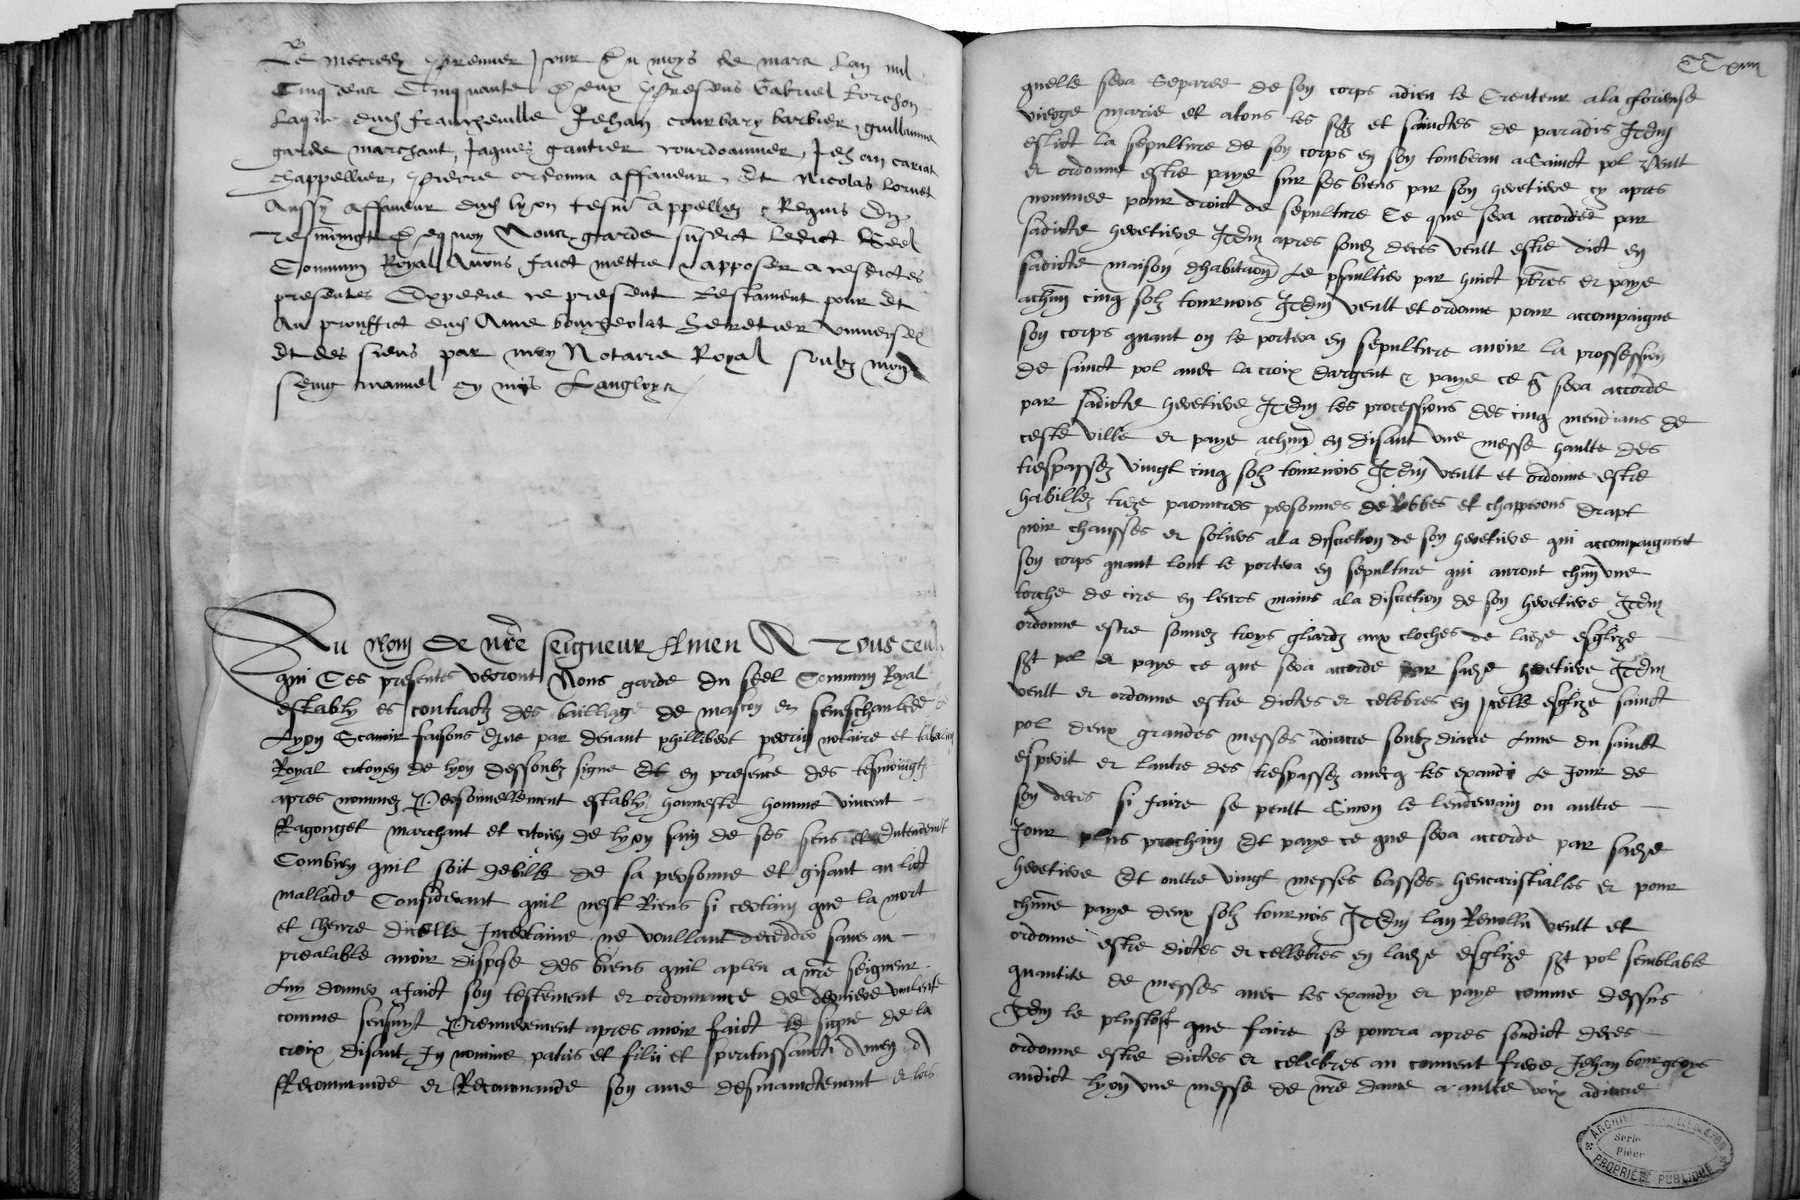 Le mecredy premier jour du moys de mars lan mil
Cinq cens Cinquante deux presens Gabriel
dud francheville Jehan courbary barbier, guillaume
garde marchant, Jaques gantier courdoannier, Jehan cariat
chappellier, pierre affaneur, Et Nicolas lornet
Aussy affaneur dud lyon tesm appellez & Requis En
tesmoingt dequoy Nous garde susdict ledict Seel
Commun Royal Avons faict mettre & apposer a cesdictes
presentes Expedie ce present testament pour Et
Au prouffict dud Ame bourgeolat heretier universel
Et des siens par moy Notaire Royal soubz mon
seing manuel cy mys Langloys
Au Nom de nre seigneur Amen A Tous ceulx
qui Ces presentes verront Nous garde du seel Commun Royal
estably es contractz des bailliage de mascon et seneschaulcee de
Lyon Scavoir faisons Que par devant phillibert perrin notaire et tabellion
Royal citoyen de lyon dessoubz signe Et en presence des tesmoingtz
apres nommez Personnellement estably honneste homme vincent
Ragonget marchant et citoien de lyon sain de ses sens et Entendemt
Combien quil soit debille de sa personne et gisant au lict
mallade Considerant quil nest Riens si certain que la mort
et lheure dicelle Incertaine ne voullant deceder sans au
prealable avoir dispose des biens quil a pleu a nre seigneur
Luy donner a faict son testement et ordonnance de derniere voulente
comme sensuyt Premierement apres avoir faict le signe de la
croix disant In nomine patris et filii et spiritussancti Amen A
Recommande et Recommande son ame desmainctenant et lors
CC xiiii
quelle sera Separee de son corps a dieu le Createur a la glorieuse
vierge marie et a tous les sctz et sainctes de paradis Item
eslict la sepulture de son corps en son tombeau a Sainct pol Veult
et ordonne estre paye sur ses biens par son heretiere cy apres
nommee pour droict de sepulture Ce que sera accorde par
sadicte heretiere Item apres sondz deces veult estre dict en
sadicte maison dhabitaon Le psaultier par huict pbres et paye
achun cinq solz tournois Item veult et ordonne pour accompaigne
son corps quant on le portera en sepulture avoir la prossession
de sainct pol avec la croix dargent & paye ce q sera accorde
par sadicte heretiere Item les processions des cinq mendians de
ceste ville et paye achun en disant une messe haulte des
trespassez vingt cinq solz tournois Item veult et ordonne estre
habillez treze pauvres personnes de Robbes et chapperons drapt
noir chausses et soliers a la discretion de son heretiere qui accompaignent
son corps quant lont le portera en sepulture qui auront chun une
torche de cire en leurs mains a la discretion de son heretiere Item
ordonne estre sonnez troys gliardz aux cloches de ladze esglize
sct pol et paye ce que sera accorde par sadze heretiere Item
veult et ordonne estre dictes et celebres en icelle esglize sainct
pol deux grandes messes a diacre soubz diacre Lune du sainct
esperit et lautre des trespassez avecq les expandi Le Jour de
son deces si faire se peult Sinon le lendemain ou aultre
Jour plus prochain Et paye ce que sera accorde par sadze
heretiere Et oultre vingt messes basses heucaristialles et pour
chune paye deux solz tournois Item lan Revollu veult et
ordonne estre dictes et cellebres en ladze esglize sct pol semblable
quantite de messes avec les expandy et paye comme dessus
Item le plustost que faire se pourra apres sondict deces
ordonne estre dictes et celebres au convent frere Jehan bourgeoys
audict lyon une messe de nre dame a aulte voix a diacre
ARCHIVES
Serie
Piece
PROPRIÉTÉ PUBLIQUE